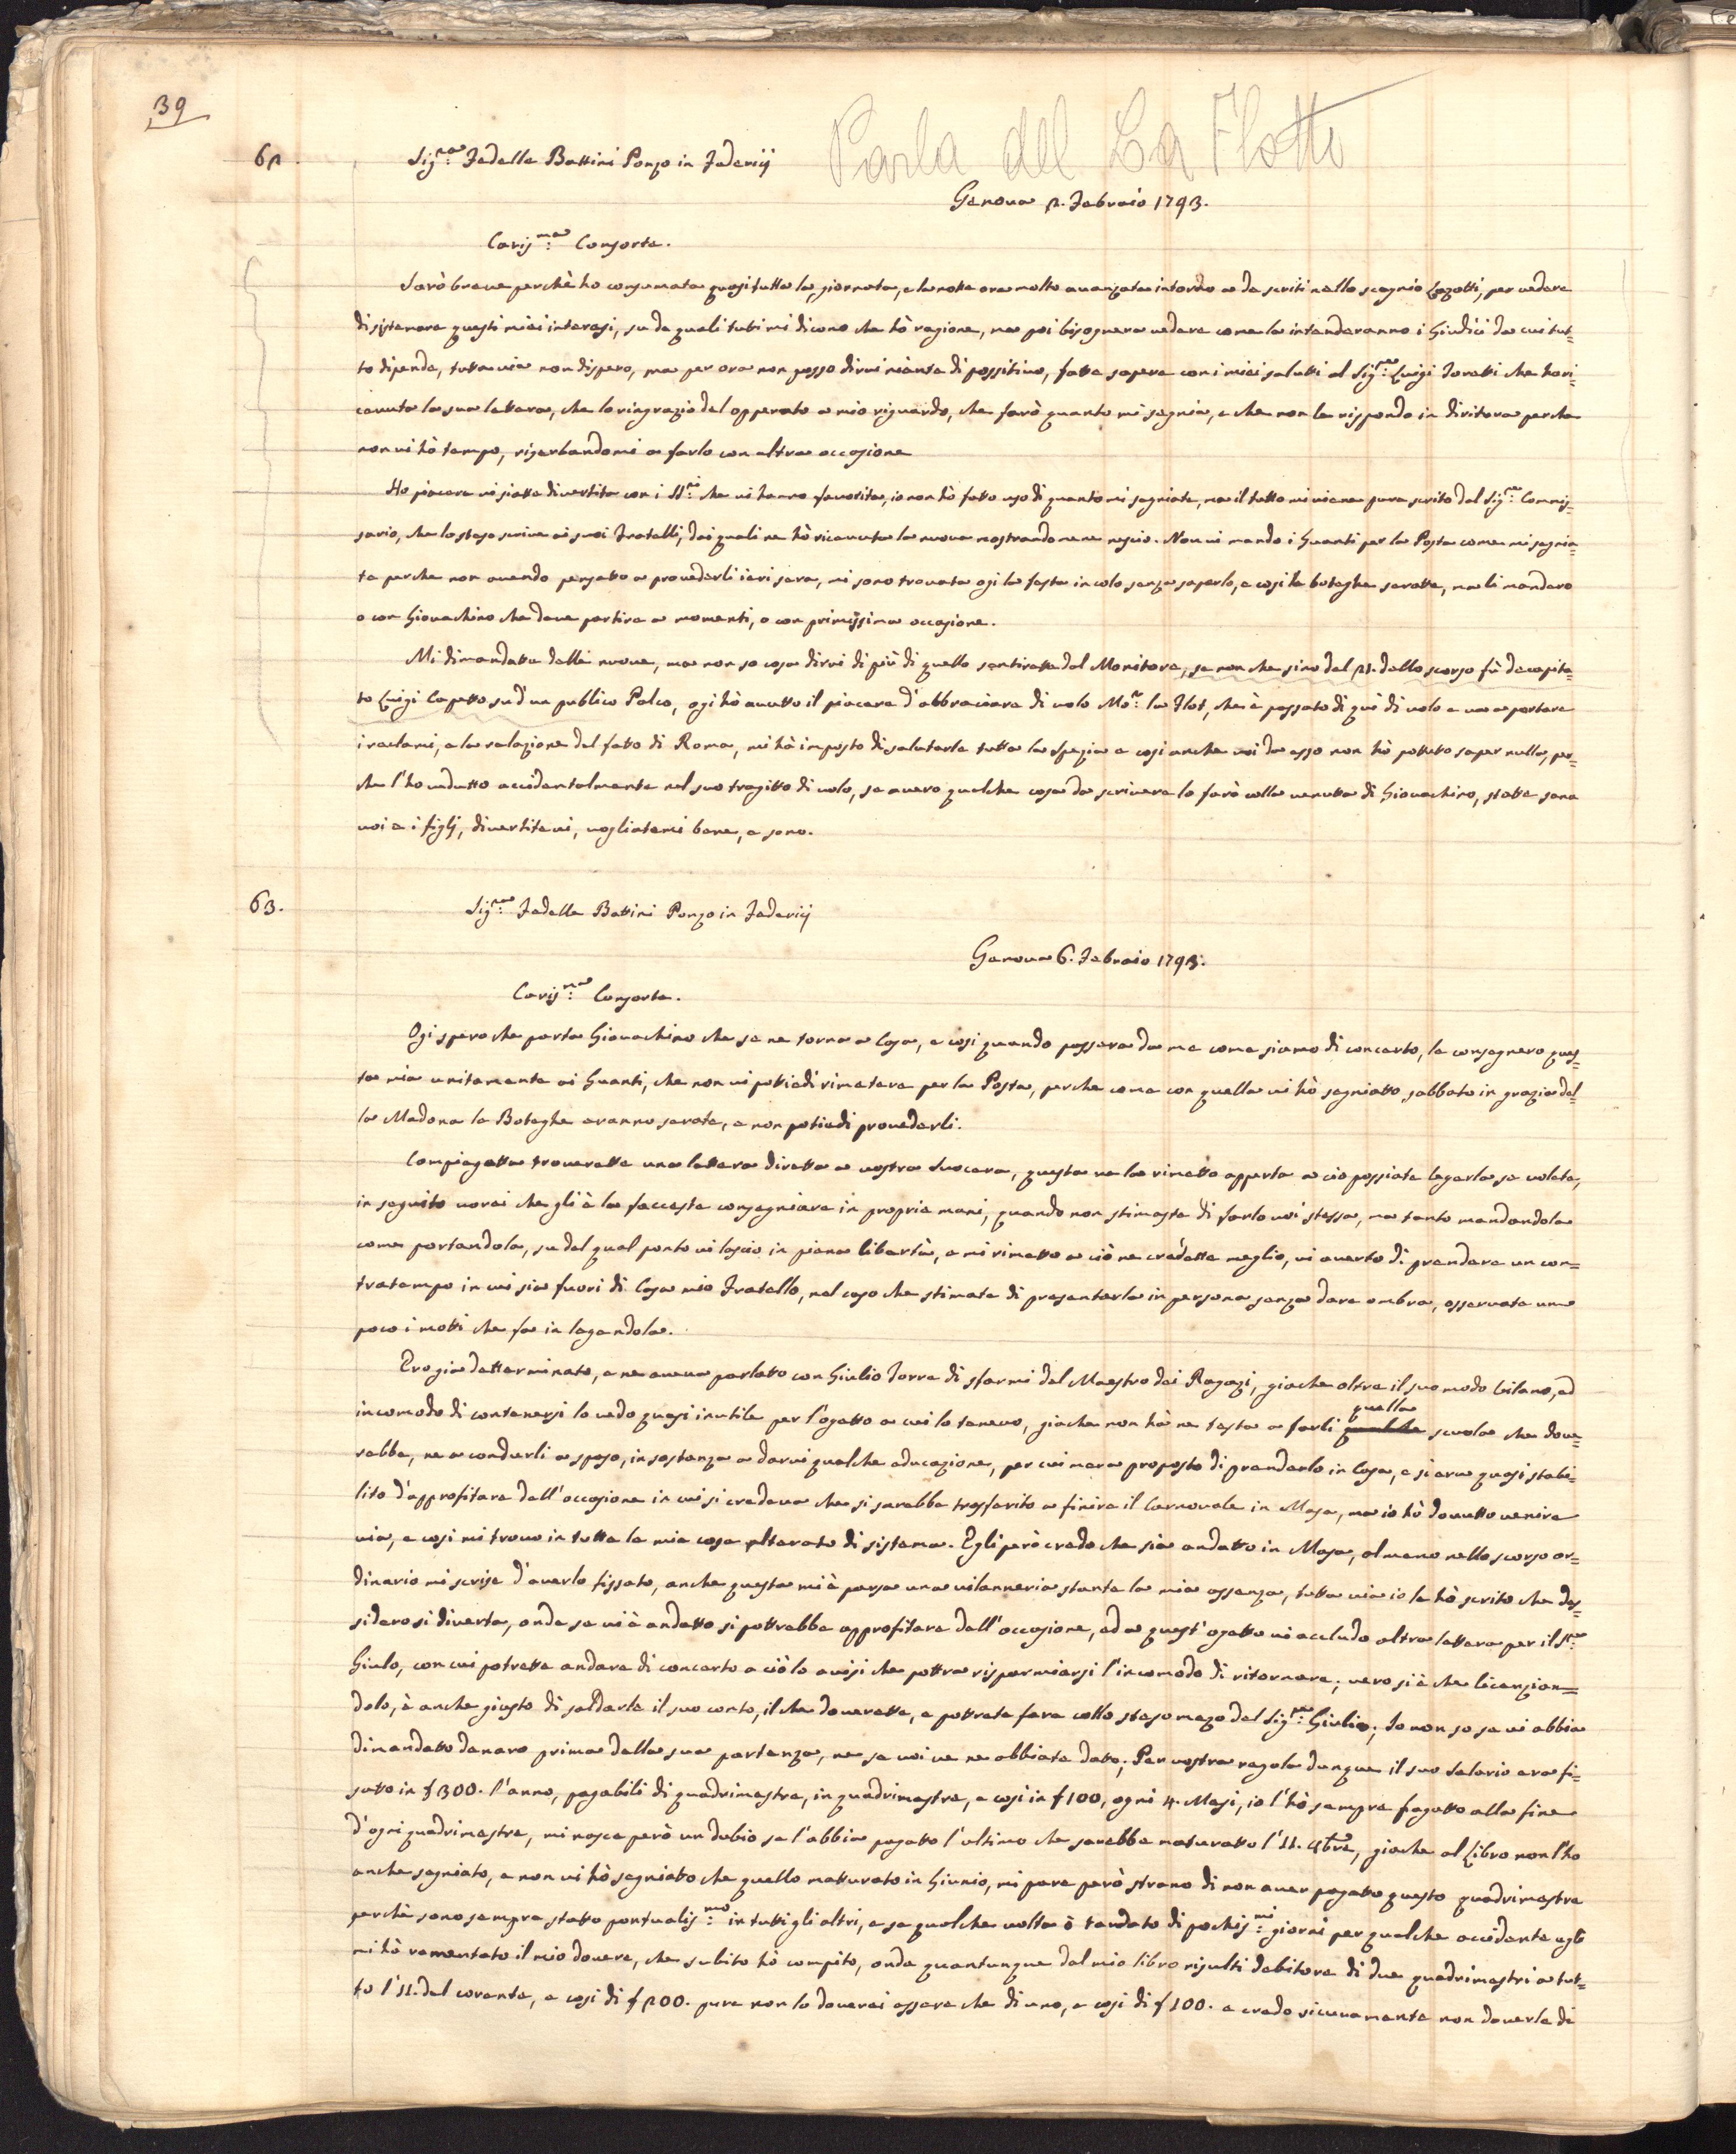 39
Parla del La Flotte
62. Sig.ra Fedelle Battini Ponzo in Federicij
Genova 2. Febraio 1793.
Caris.ma Consorte.
Sarò breve perchè ho consumata quasi tutta la giornata, e la notte ora molto avanzata intorno a de scriti nello scagnio Cozotti, per vedere
di sistemare questi miei interasi, su de quali tuti mi dicono che hò ragione, ma poi bisognera vedere come la intenderanno i Giudici da cui tut=
to dipende, tutta via non dispero, ma per ora non posso dirvi niente di possitivo, fatte sapere con i miei saluti al Sig.re Luigi Toratti che ho ri=
cevuta la sua lettera, che lo ringrazio del opperato a mio riguardo, che farò quanto mi segnia, e che non le rispondo in diritura perche
non vi hò tempo, riserbandomi a farlo con altra occasione
Ho piacere vi siatte divertita con i SS.ri che vi hanno favorita, io non hò fatto uso di quanto mi segniate, ma il tutto mi viene pure scrito dal Sig.re Commis=
sario, che lo steso scrive ai suoi Fratelli, dai quali ne hò ricevuta la nuova mostrandomene nescio. Non vi mando i Guanti per la Posta come mi segnia=
te perche non avendo pensatto a provederli ieri sera, mi sono trovata ogi la festa in colo senza saperlo, e cosi le boteghe seratte, ma li mandero
o con Giovachino che deve partire a momenti, o con primissima occasione.
Mi dimandatte delle nuove, ma non so cosa dirvi di più di quello sentiratte dal Monitore, se non che sino del 21. dello scorso fù decapita=
to Luigi Capetto su d'un publico Palco, ogi hò avutto il piacere d'abbraciare di volo Mo.r la Flot, che è passato di quì di volo e va a portare
i reclami, e la relazione del fatto di Roma, mi hà imposto di salutarle tutta la Spezia e cosi anche voi da esso non hò pottuto saper nulla, per=
che l'ho vedutto accidentalmente nel suo tragitto di volo, se avero qualche cosa da scrivere lo farò colla venutta di Giovachino, statte sana
voi e i figlj, divertitevi, vogliatemi bene, e sono.
63. Sig.ra Fedelle Battini Ponzo in Federicij
Genova 6. Febraio 1793.
Caris.ma Consorte.
Ogi spero che parta Giovachino che se ne torna a Casa, e cosi quando passera da me come siamo di concerto, le consegnero ques=
ta mia unitamente ai Guanti, che non vi pottiedi rimetere per la Posta, perche come con quella vi hò segniatto sabbato in grazia del=
la Madona le Boteghe eranno serate, e non potiedi provederli.
Compiegatta troveratte una lettera diretta a vostra Suocera, questa ve la rimetto apperta a ciò possiate legerla se volete,
in seguito vorei che gli è la faceste consegniare in proprie mani, quando non stimaste di farlo voi stessa, ma tanto mandandola
come portandola, su del qual ponto vi lascio in piena libertà, e mi rimetto a ciò ne credette meglio, vi averto di prendere un con=
tratempo in cui sia fuori di Casa mio Fratello, nel caso che stimate di presentarla in persona senza dare ombra, osservate une
poco i motti che fa in legendola.
Ero gia detterminato, e ne aveva parlatto con Giulio Torre di sfarmi del Maestro dei Ragazi, giache oltre il suo modo vilano, ed
incomodo di contenersi lo vedo quasi inutile per l'ogetto a cui lo tenevo, giache non hà ne testa a farli quella scuola che dove=
rebbe, ne a condurli a spaso, in sostanza a darvi qualche educazione, per cui mera proposto di prenderlo in Casa, e si era quasi stabi=
lito d'approfitare dell'occasione in cui si credeva che si sarebbe trasferito a finire il Carnovale in Masa, ma io hò dovutto venire
via, e cosi mi trovo in tutte le mie cose alterato di sistema. Egli però credo che sia andatto in Masa, almeno nello scorso or=
dinario mi scrise d'averlo fissato, anche questa mi è parsa una vilanneria stante la mia assenza, tutta via io le hò scrito che des=
sidero si diverta, onde se vi è andatto si pottrebbe approfitare dell'occasione, ed a quest'ogetto vi accludo altra lettera per il S.re
Giulo, con cui potrette andare di concerto a ciò lo avisi che pottra risparmiarsi l'incomodo di ritornare; vero si è che licenzian=
dolo, è anche giusto di soldarle il suo conto, il che doverette, e pottrete fare collo steso mezo del Sig.re Giulio; Io non so se vi abbia
dimandatto denaro prima della sua partenza, ne se voi ve ne abbiate dato; Per vostra regola dunque il suo salario era fi=
satto in £ 300. l'anno, pagabili di quadrimestre, in quadrimestre, e cosi in £ 100, ogni 4. Mesi, io l'hò sempre pagatto alla fine
d'ogni quadrimestre, mi nasce però un dubio se l'abbia pagatto l'ultimo che sarebbe maturatto l'11. 8bre, giache al Libro non l'ho
anche segniato, e non vi hò segniatto che quello matturato in Giunio, mi pare però strano di non aver pagatto questo quadrimestre
perchè sono sempre statto pontualis.mo in tutti gli altri, e se qualche volta ò tardato di pochis.mi giorni per qualche accidente egli
mi hà ramentato il mio dovere, che subito hò compito, onde quantunque dal mio libro risulti debitore di due quadrimestri a tut=
to l'11. del corente, e cosi di £ 200. pure non lo doverei essere che di uno, e cosi di £ 100. e credo sicuramente non doverle di